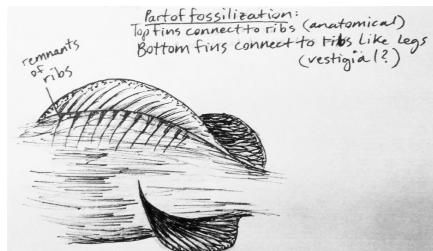 Part of fossilization:
Top fins connect to ribs (anatomical)
Bottom fins connect to ribs like legs
(vestigial?)
remnants
of
ribs